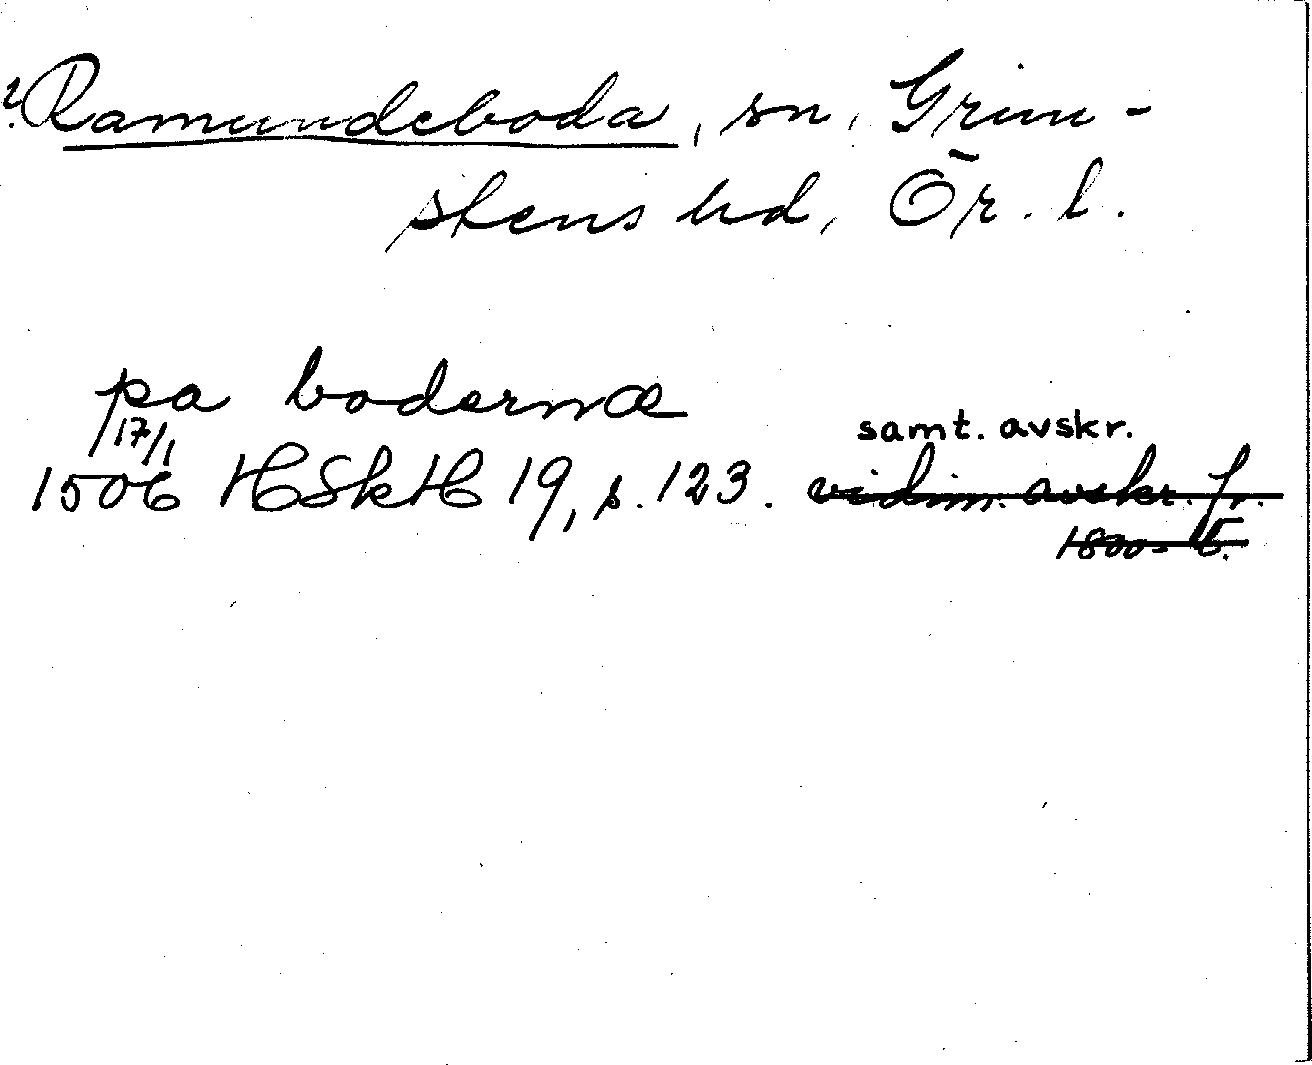 ?Ramundeboda, sn, Grim-
stens hd, Ör. l.
pa bodernæ
17/1
samt. avskr.
1506 HSkH 19, s. 123. vidim. avskr. fr.
1800-t.